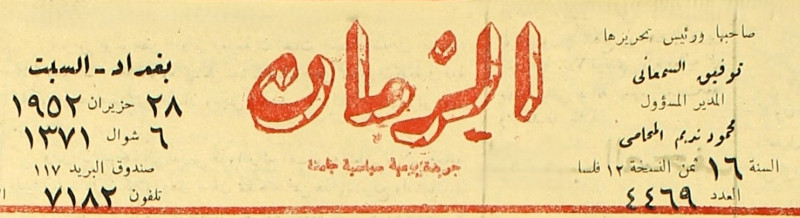 صاحبها ورئيس تحريرها
توفيق السمعاني
المدير المسؤول
محمود نديم المحامي
السنة ١٦ ثمن النسخة ١٢ فلسا
العدد ٤٤٦٩
الزمان
جريدة يومية سياسية جامعة
بغداد - السبت
٢٨ حزيران ١٩٥٢
٦ شوال ١٣٧١
صندوق البريد ١١٧
تلفون ٧١٨٢